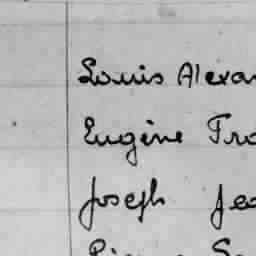 Louis Alexan
Eugène Fra
Joseph Jea